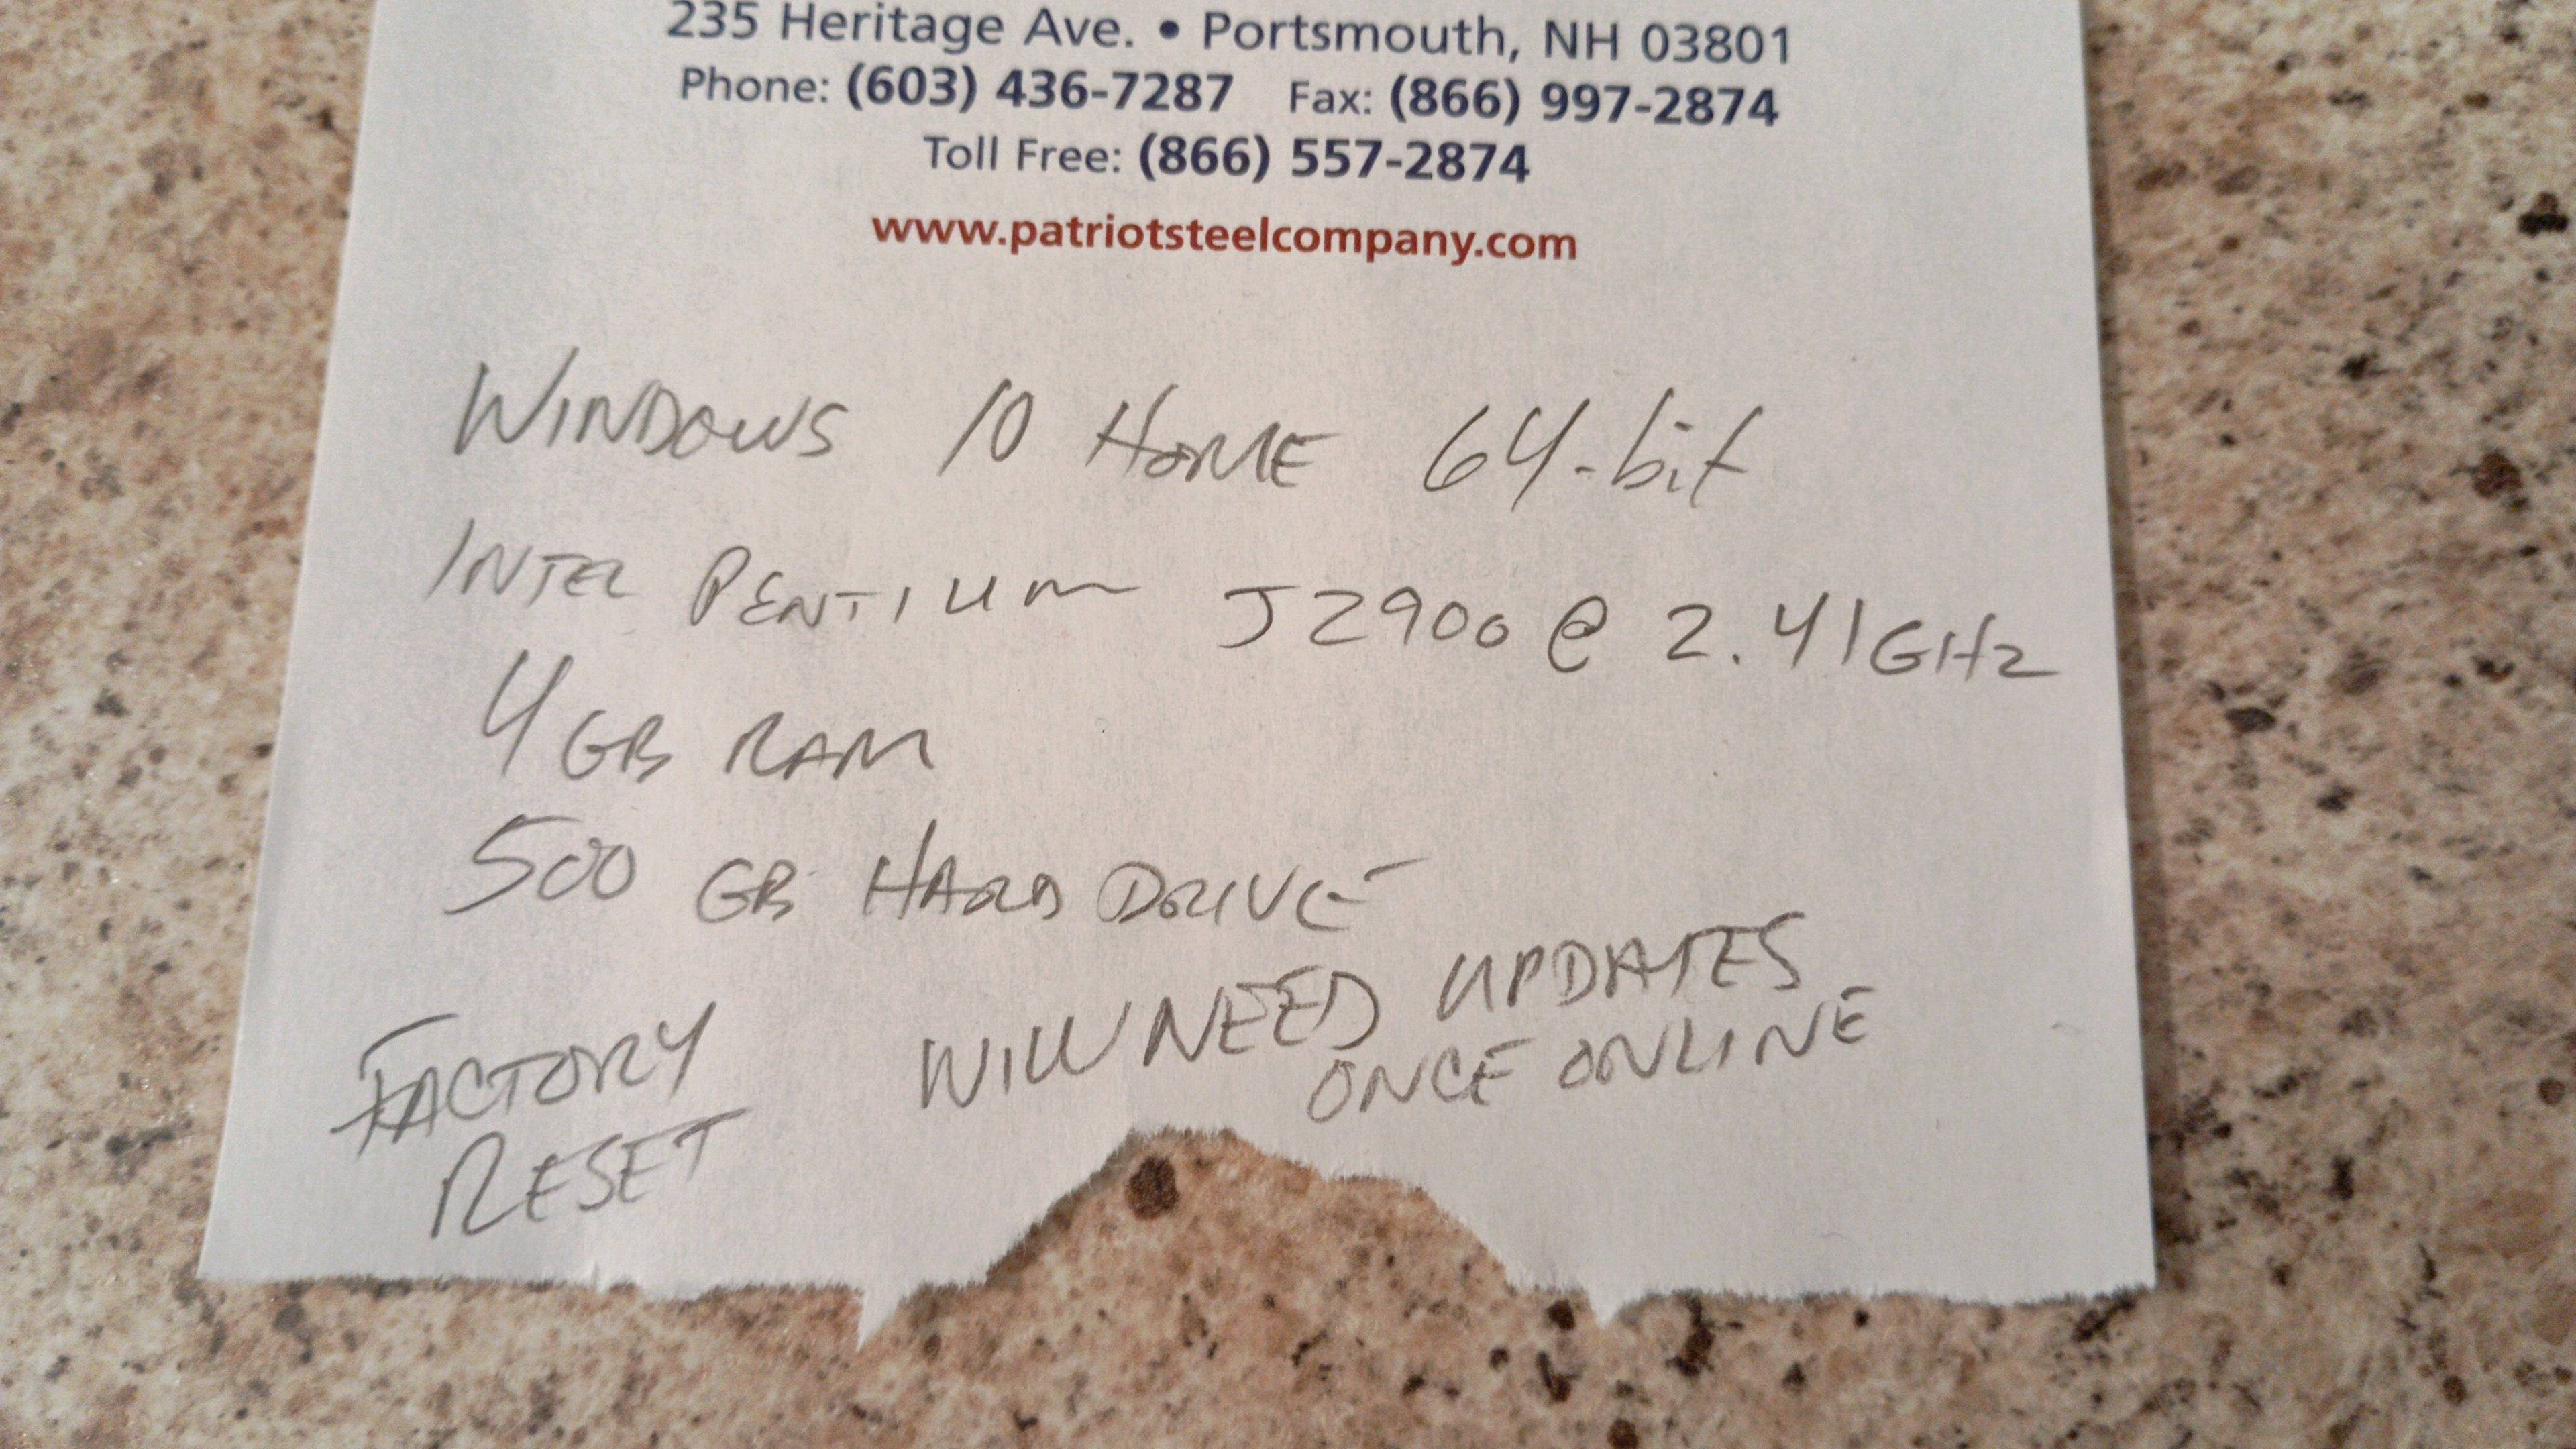 235 Heritage Ave. • Portsmouth, NH 03801
Phone: (603) 436-7287 Fax: (866) 997-2874
Toll Free: (866) 557-2874
www.patriotsteelcompany.com
WINDOWS 10 HOME 64-bit
INTEL PENTIUM J2900 @ 2.41GHz
4 GB RAM
500 GB HARD DRIVE
FACTORY
RESET
WILL NEED UPDATES
ONCE ONLINE